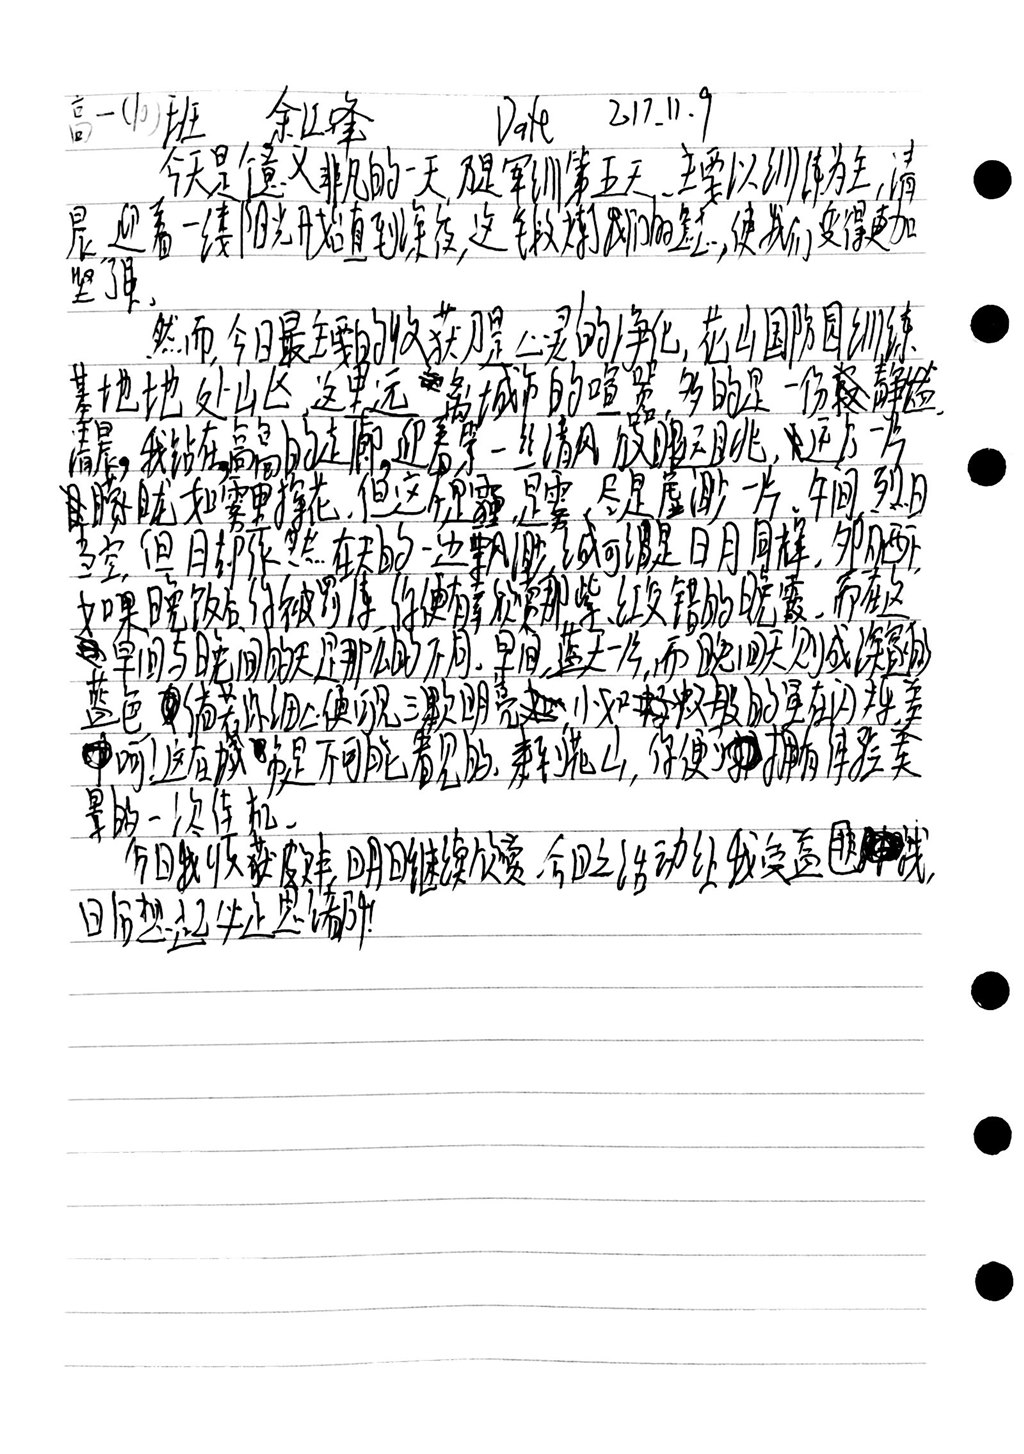 高一(10)班 余江峰 Date 2017.11.9
今天是个意义非凡的一天,乃是军训第五天、主要以训练为主,清
晨,迎着一缕阳光开始直到深夜,这段我们的意志,使我们变得更加
坚强、
然而,今日最主要的收获乃是心灵的净化,花山国防园训练
基地地处山区,这里远离城市的喧嚣,多的是一份静谧、
清晨,我站在高高的走廊,迎着一丝清风,放眼天目兆,远方一片
朦胧,如雾里探花、但这不是霾,是雾,尽是虚渺一片、午间,烈日
当空,但月却依然在天的一边飘渺,诚可谓是日月同辉,夕阳西下,
如果晚饭后你被罚停,你便有幸欣赏那紫、红交错的晚霞、而在这
早间与晚间的天是那么的不同、早间,蓝天一片,而晚间天则成深邃的
蓝色,倘若你细心便可见三颗明亮,小如般的星在闪烁美
呵!这在城市是不可能看见的、来到花山,你便可拥有体验美
景的一次佳机、
今日我收获颇丰,明日继续欣赏、今日之活动让我受益匪浅,
日后想起必是思绪万千!